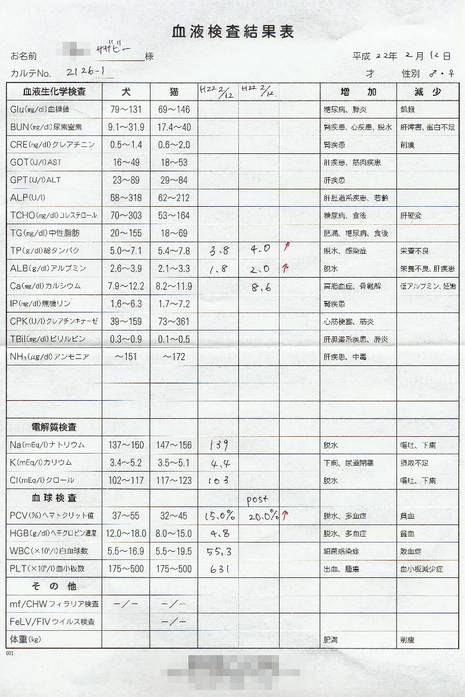 血液検査結果表
お名前 サザビー 様 平成 22年 2月 12日
カルテNo. 2126-1 才 性別 ♂・♀
血液生化学検査 犬 猫 H22 2/12 H22 2/12 増加 減少
Glu(mg/dl)血糖値 79〜131 69〜146 糖尿病、膵炎 飢餓
BUN(mg/dl)尿素窒素 9.1〜31.9 17.4〜40 腎疾患、心疾患、脱水 肝障害、蛋白不足
CRE(mg/dl)クレアチニン 0.5〜1.4 0.6〜2.0 腎疾患 削痩
GOT(U/l)AST 16〜49 18〜53 肝疾患、筋肉疾患
GPT(U/l)ALT 23〜89 29〜84 肝疾患
ALP(U/l) 58〜318 62〜212 肝胆道系疾患、若齢
TCHO(mg/dl)コレステロール 70〜303 53〜164 糖尿病、食後 肝硬変
TG(mg/dl)中性脂肪 20〜155 18〜69 肥満、糖尿病、食後
TP(g/dl)総タンパク 5.0〜7.1 5.4〜7.8 3.8 4.0 ↑ 脱水、感染症 栄養不良
ALB(g/dl)アルブミン 2.6〜3.9 2.1〜3.3 1.8 2.0 ↑ 脱水 栄養不良、肝疾患
Ca(mg/dl)カルシウム 7.9〜12.2 8.2〜11.9 8.6 高脂血症、骨融解 低アルブミン、妊娠
IP(mg/dl)無機リン 1.6〜6.3 1.7〜7.2 腎疾患
CPK(U/l)クレアチンキナーゼ 39〜159 73〜361 心筋梗塞、筋炎
TBil(mg/dl)ビリルビン 0.3〜0.9 0.1〜0.5 肝胆道系疾患、膵炎
NH₃(μg/dl)アンモニア 〜151 〜172 肝疾患、中毒
電解質検査
Na(mEq/l)ナトリウム 137〜150 147〜156 139 脱水 嘔吐、下痢
K(mEq/l)カリウム 3.4〜5.2 3.5〜5.1 4.4 下痢、尿道閉塞 摂取不足
Cl(mEq/l)クロール 102〜117 117〜123 103 脱水 嘔吐、下痢
血球検査 post
PCV(%)ヘマトクリット値 37〜55 32〜45 15.0% 20.0% ↑ 脱水、多血症 貧血
HGB(g/dl)ヘモグロビン濃度 12.0〜18.0 8.0〜15.0 4.8 脱水、多血症 貧血
WBC(×10³/l)白血球数 5.5〜16.9 5.5〜19.5 55.3 細菌感染症 敗血症
PLT(×10³/l)血小板数 175〜500 175〜500 631 出血、腫瘍 血小板減少症
その他
mf/CHWフィラリア検査 −/− −/−
FeLV/FIVウイルス検査 −/−
体重(kg) 肥満 削痩
001